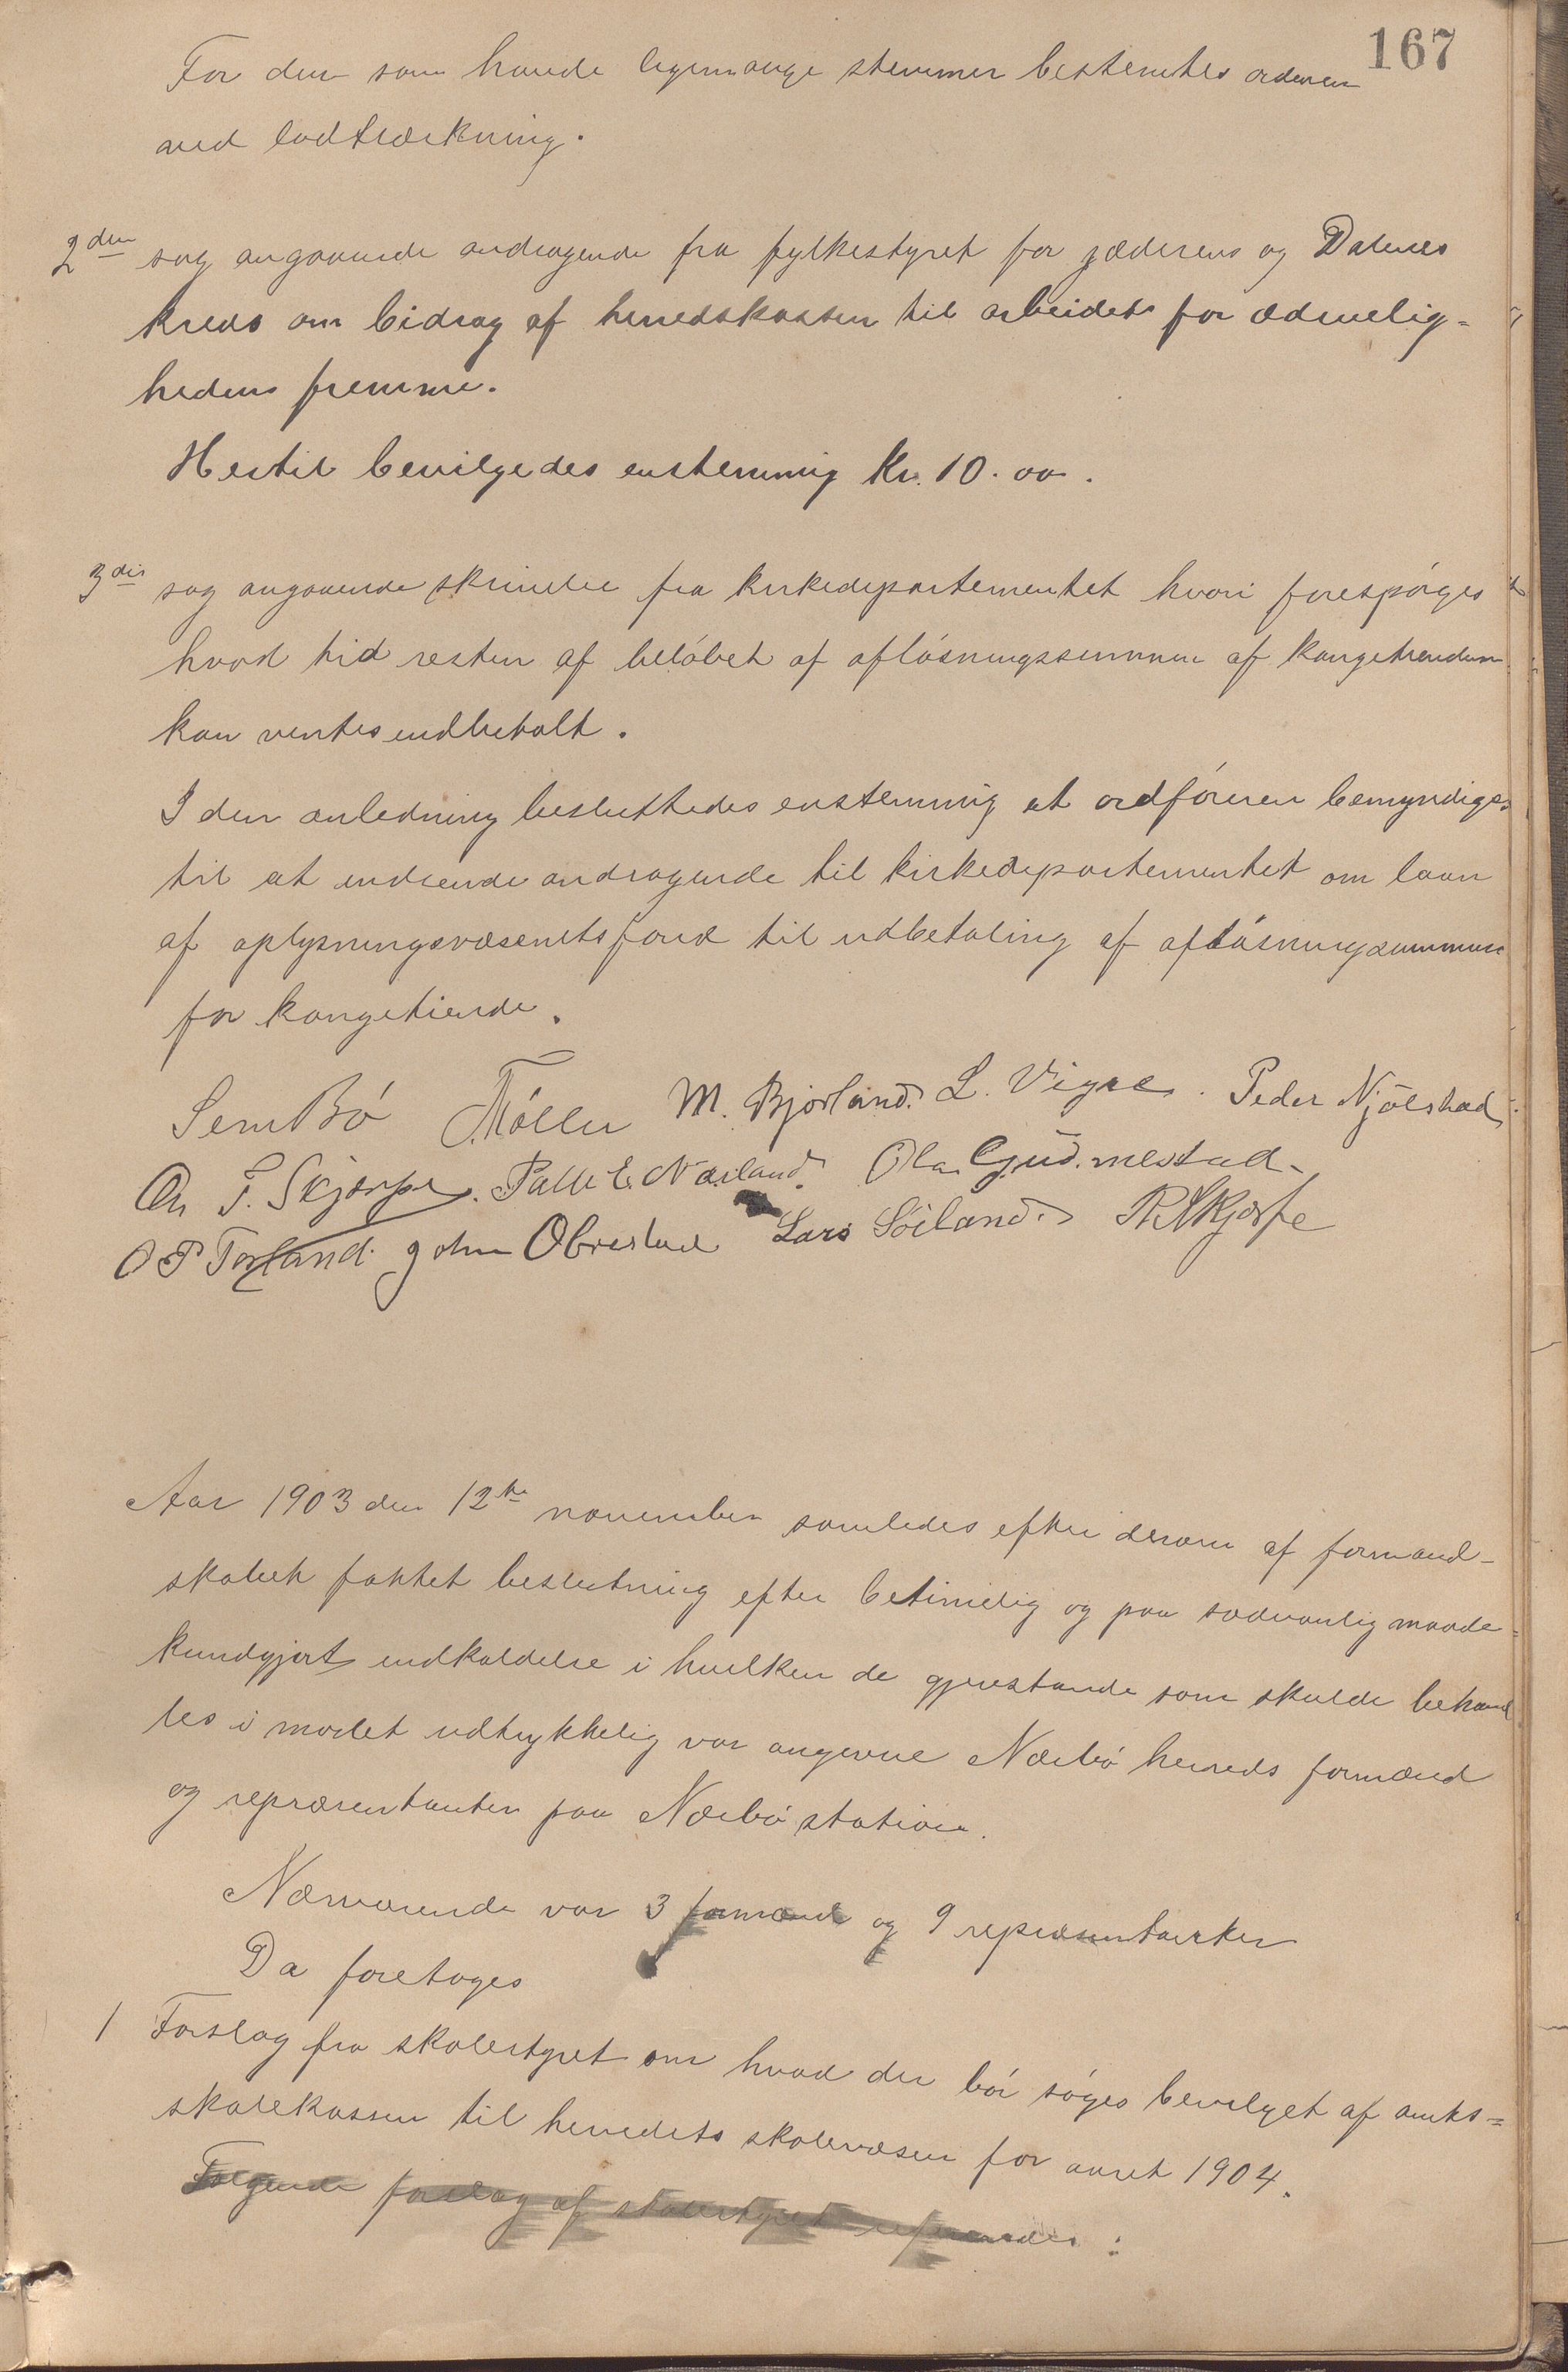 167
For dem som havde ligemange stemmer bestemtes ordenen
ved lodtrækning.
2den sag angaaende andragende fra fylkestyret for jæderens og Dalenes
kreds om bidrag af herredskassen til arbeidet for ædruelig-
hedens fremme.
Hertil bevilgedes enstemmig Kr. 10.00.
3die sag angaaende skrivelse fra kirkedepartementet hvori forespørges
hvad tid resten af beløbet af afløsningssummen af kongetienden
kan ventes indbetalt.
I den anledning besluttedes enstemmig at ordføreren bemyndiges
til at indsende andragende til kirkedepartementet om laan
af oplysningsvæsenets fond til udbetaling af afløsningsummen
for kongetiende.
Sem Bø Møller M. Bjorland. L. Vigre. Peder Njølstad
Th. T. Skjærpe. Palle E. Nærland. Ola Gudmestad
O P Torland. John Obrestad Lars Söiland. R Skjærpe
Aar 1903 den 12te november samledes efter derom af formand-
skabet fattet beslutning efter betimelig og paa sædvanlig maade
kundgjort indkaldelse i hvilken de gjenstande som skulde behand
les i mødet udtrykkelig var angivne Nærbø herreds formænd
og repræsentanter paa Nærbø station.
Nærværende var 3 formænd og 9 repræsentanter
Da foretoges
1 Forslag fra skolestyret om hvad der bør søges bevilget af amts-
skolekassen til herredets skolevæsen for aaret 1904.
Følgende forslag af skolestyret refereredes :